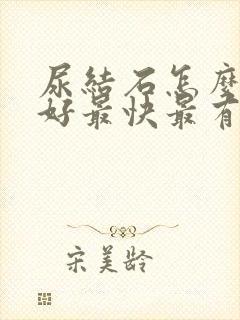 尿結石怎麼
好最快最有
宋美齡